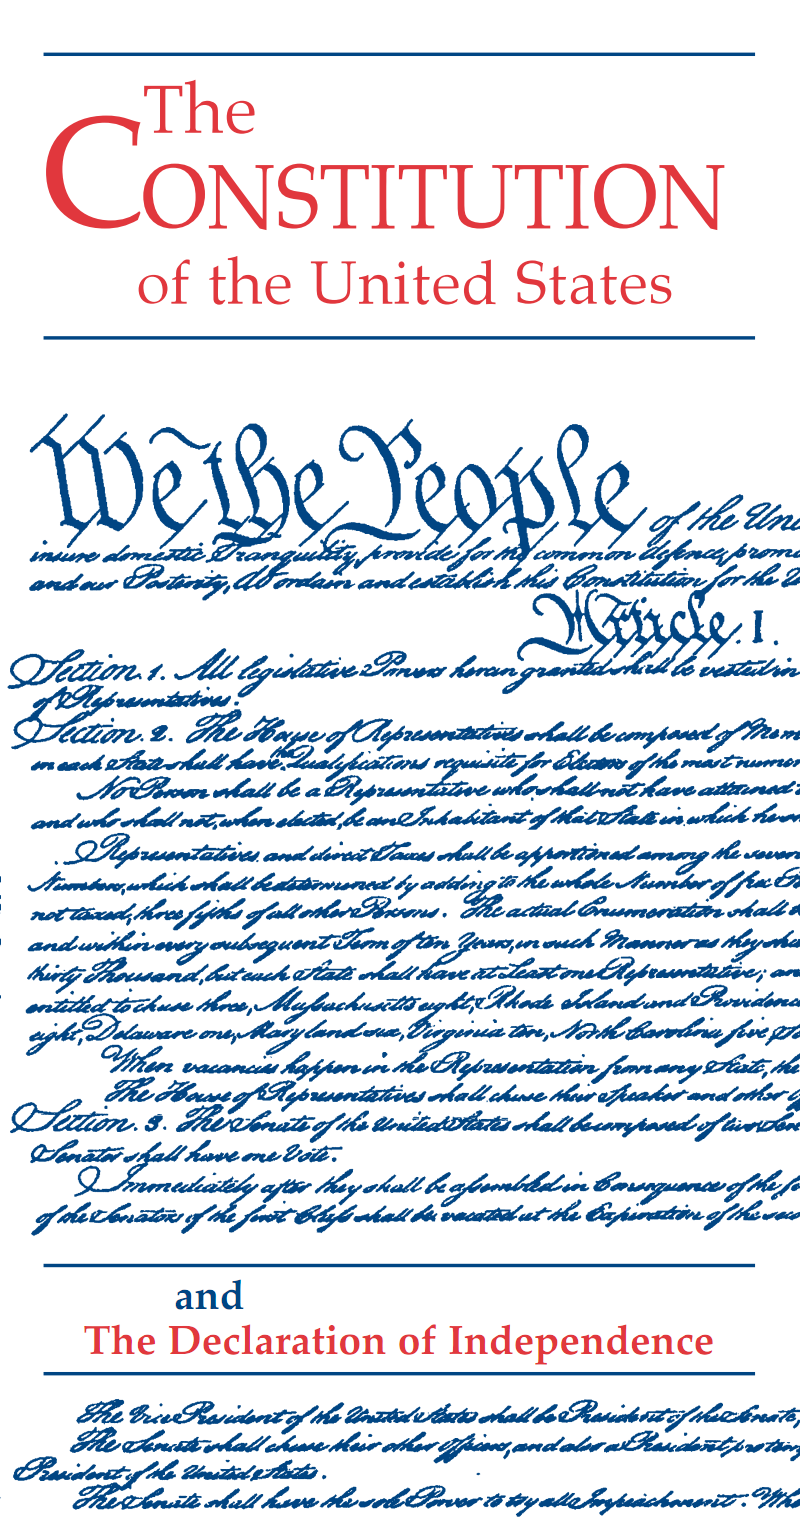 The
CONSTITUTION
of the United States
We the People of the Uni
insure domestic Tranquility, provide for the common defence, promo
and our Posterity, do ordain and establish this Constitution for the U
Article. I.
Section. 1. All legislative Powers herein granted shall be vested in
of Representatives.
Section. 2. The House of Representatives shall be composed of Mem
in each State shall have the Qualifications requisite for Electors of the most numer
No Person shall be a Representative who shall not have attained t
and who shall not, when elected, be an Inhabitant of that State in which he s
Representatives and direct Taxes shall be apportioned among the sever
Numbers, which shall be determined by adding to the whole Number of free P
not taxed, three fifths of all other Persons. The actual Enumeration shall b
and within every subsequent Term of ten Years, in such Manner as they sha
thirty Thousand, but each State shall have at Least one Representative; an
entitled to chuse three, Massachusetts eight, Rhode Island and Providence
eight, Delaware one, Maryland six, Virginia ten, North Carolina five, So
When vacancies happen in the Representation from any State, the
The House of Representatives shall chuse their Speaker and other O
Section. 3. The Senate of the United States shall be composed of two Sen
Senator shall have one Vote.
Immediately after they shall be assembled in Consequence of the fi
of the Senators of the first Class shall be vacated at the Expiration of the seco
and
The Declaration of Independence
The Vice President of the United States shall be President of the Senate,
The Senate shall chuse their other Officers, and also a President pro temp
President of the United States.
The Senate shall have the sole Power to try all Impeachments. Whe